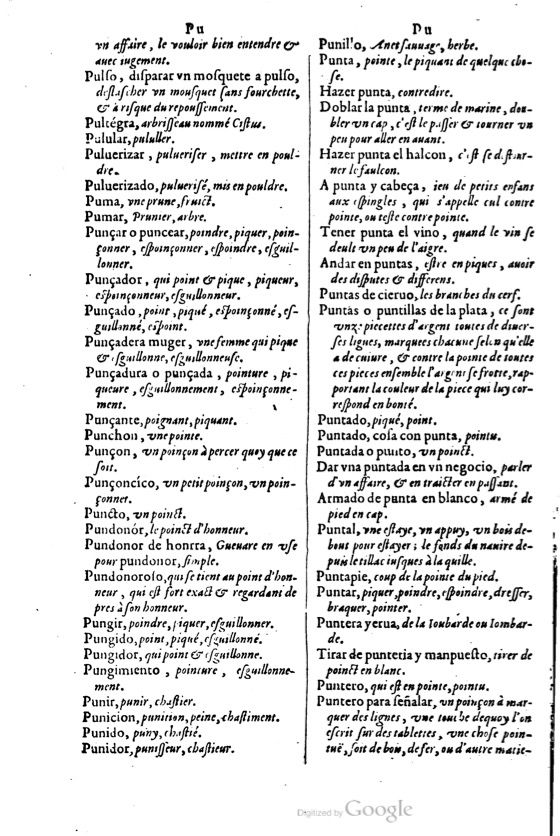 Pu
vn affaire, le vouloir bien entendre &
auec iugement.
Pulſo, diſparar vn moſquete a pulſo,
deſlaſcher vn mouſquet ſans fourchette,
& à riſque du repouſſement.
Pultégra, arbriſſeau nommé Ciſtus.
Pulular, pululler.
Puluerizar, pulueriſer, mettre en poul-
dre.
Puluerizado, pulueriſé, mis en pouldre.
Puma, vne prune, fruict.
Pumar, Prunier, arbre.
Punçar o puncear, poindre, piquer, poin-
çonner, eſpoinçonner, eſpoindre, eſguil-
lonner.
Punçador, qui point & pique, piqueur,
eſpoinçonneur, eſguillonneur.
Punçado, point, piqué, eſpoinçonné, eſ-
guillonné, eſpoint.
Punçadera muger, vne femme qui pique
& eſguillonne, eſguillonneuſe.
Punçadura o punçada, pointure, pi-
queure, eſguillonnement, eſpoinçonne-
ment.
Punçante, poignant, piquant.
Punchon, vne pointe.
Punçon, vn poinçon à percer quoy que ce
ſoit.
Punçoncico, vn petit poinçon, vn poin-
çonnet.
Puncto, vn poinct.
Pundonór, le poinct d'honneur.
Pundonor de honrra, Gueuare en vſe
pour pundonor, ſimple.
Pundonoroſo, qui ſe tient au point d'hon-
neur, qui eſt fort exact & regardant de
pres à ſon honneur.
Pungir, poindre, piquer, eſguillonner.
Pungido, point, piqué, eſguillonné.
Pungidor, qui point & eſguillonne.
Pungimiento, pointure, eſguillonne-
ment.
Punir, punir, chaſtier.
Punicion, punition, peine, chaſtiment.
Punido, puny, chaſtié.
Punidor, puniſſeur, chaſtieur.
Pu
Punillo, Anet ſauuage, herbe.
Punta, pointe, le piquant de quelque cho-
ſe.
Hazer punta, contredire.
Doblar la punta, terme de marine, dou-
bler vn cap, c'eſt le paſſer & tourner vn
peu pour aller en auant.
Hazer punta el halcon, c'eſt ſe deſtour-
ner le faulcon.
A punta y cabeça, ieu de petits enfans
aux eſpingles, qui s'appelle cul contre
pointe, ou teſte contre pointe.
Tener punta el vino, quand le vin ſe
deult vn peu de l'aigre.
Andar en puntas, eſtre en piques, auoir
des diſputes & differens.
Puntas de cieruo, les branches du cerf.
Puntas o puntillas de la plata, ce ſont
vnze piecettes d'argent toutes de diuer-
ſes lignes, marquees chacune ſelon qu'elle
a de cuiure, & contre la pointe de toutes
ces pieces enſemble l'argent ſe frotte, rap-
portant la couleur de la piece qui luy cor-
reſpond en bonté.
Puntado, piqué, point.
Puntado, coſa con punta, pointu.
Puntada o punto, vn poinct.
Dar vna puntada en vn negocio, parler
d'vn affaire, & en traicter en paſſant.
Armado de punta en blanco, armé de
pied en cap.
Puntal, vne eſtaye, vn appuy, vn bois de-
bout pour eſtayer; le fonds du nauire de-
puis le tillac iuſques à la quille.
Puntapie, coup de la pointe du pied.
Puntar, piquer, poindre, eſpoindre, dreſſer,
braquer, pointer.
Puntera yerua, de la Ioubarde ou Iombar-
de.
Tirar de punteria y manpueſto, tirer de
poinct en blanc.
Puntero, qui eſt en pointe, pointu.
Puntero para ſeñalar, vn poinçon à mar-
quer des lignes, vne touche dequoy l'on
eſcrit ſur des tablettes, vne choſe poin-
tuë, ſoit de bois, de fer, ou d'autre matie-
Digitized by Google